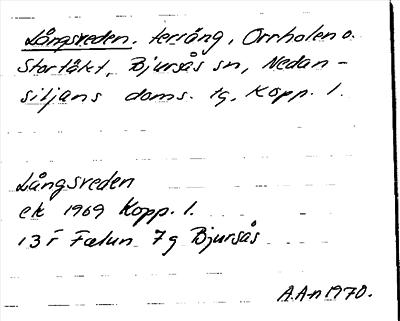 Långsveden, terräng, Orrholen o.
Stortäkt, Bjursås sn, Nedan-
siljans doms. tg, Kopp. l.
Långsveden
ek 1969 Kopp. l.
13 F Falun 7g Bjursås
A.A-n 1970.